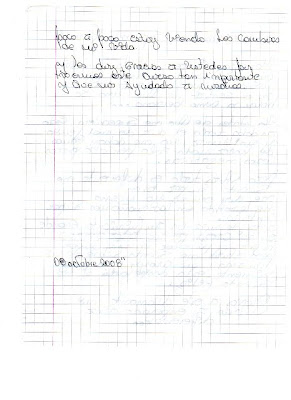 poco a poco estoy viendo los cambios
de mi vida
y les doy gracias a ustedes por
este curso tan importante
y que nos ayudado a muchos.
08 octubre 2008"